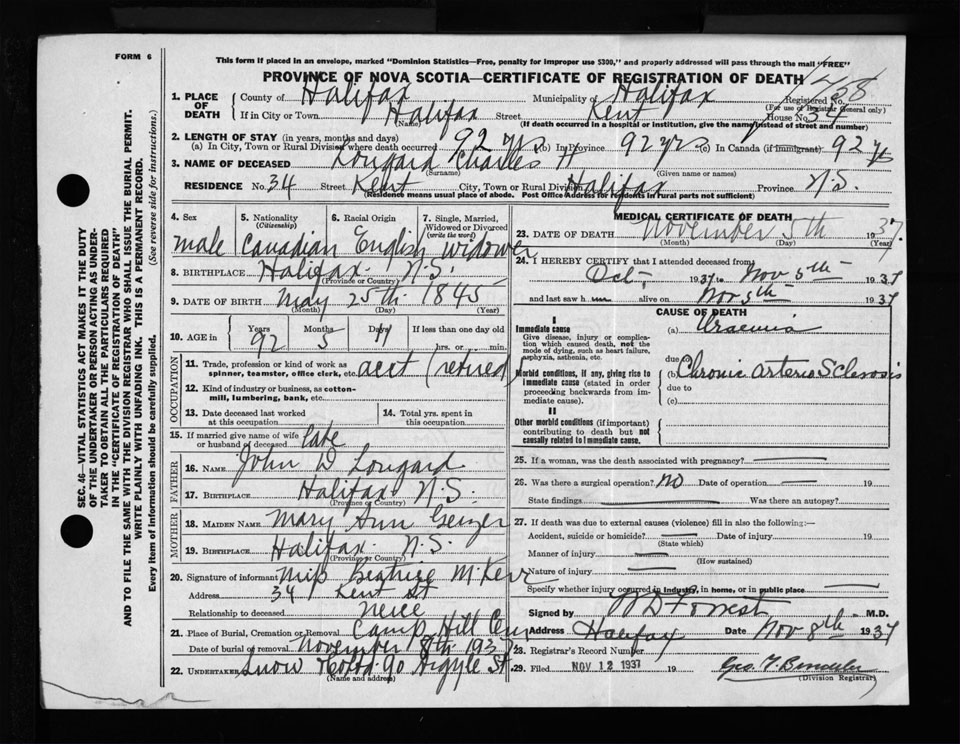 FORM 6
This form if placed in an envelope, marked "Dominion Statistics—Free, penalty for improper use $300," and properly addressed will pass through the mail "FREE"
PROVINCE OF NOVA SCOTIA—CERTIFICATE OF REGISTRATION OF DEATH
SEC. 46—VITAL STATISTICS ACT MAKES IT THE DUTY
OF THE UNDERTAKER OR PERSON ACTING AS UNDER-
TAKER TO OBTAIN ALL THE PARTICULARS REQUIRED
IN THE "CERTIFICATE OF REGISTRATION OF DEATH"
AND TO FILE THE SAME WITH THE DIVISION REGISTRAR WHO SHALL ISSUE THE BURIAL PERMIT.
WRITE PLAINLY WITH UNFADING INK. THIS IS A PERMANENT RECORD.
Every item of information should be carefully supplied. (See reverse side for instructions.)
1. PLACE OF DEATH County of Halifax Municipality of Halifax Registered No.
(For use of Registrar General only)
If in City or Town Halifax Street Kent House No. 34
(Name) (If death occurred in a hospital or institution, give the name instead of street and number)
2. LENGTH OF STAY (in years, months and days)
(a) In City, Town or Rural Division where death occurred 92 yrs (b) In Province 92 yrs (c) In Canada (if immigrant) 92 yrs
3. NAME OF DECEASED Longard Charles H
(Surname) (Given name or names)
RESIDENCE No. 34 Street Kent City, Town or Rural Division Halifax Province N.S.
(Residence means usual place of abode. Post Office Address for residents in rural parts not sufficient)
4. Sex 5. Nationality (Citizenship) 6. Racial Origin 7. Single, Married, Widowed or Divorced (write the word)
male Canadian English widower
8. BIRTHPLACE Halifax N.S.
(Province or Country)
9. DATE OF BIRTH May 25th 1845
(Month) (Day) (Year)
10. AGE in Years Months Days If less than one day old
92 5 11 hrs. or min.
OCCUPATION
11. Trade, profession or kind of work as spinner, teamster, office clerk, etc. acct (retired)
12. Kind of industry or business, as cotton-mill, lumbering, bank, etc.
13. Date deceased last worked at this occupation
14. Total yrs. spent in this occupation
15. If married give name of wife or husband of deceased late
FATHER
16. NAME John W Longard
17. BIRTHPLACE Halifax N.S.
(Province or Country)
MOTHER
18. MAIDEN NAME Mary Ann
19. BIRTHPLACE Halifax N.S.
(Province or Country)
20. Signature of informant Miss Beatrice McKerr
Address 34 Kent St
Relationship to deceased neice
21. Place of Burial, Cremation or Removal Camp Hill Cem
Date of burial or removal November 8th 1937
22. UNDERTAKER Snow & Co Ltd 90 Argyle St
(Name and address)
MEDICAL CERTIFICATE OF DEATH
23. DATE OF DEATH November 5th 1937.
(Month) (Day) (Year)
24. I HEREBY CERTIFY that I attended deceased from
Oct, 1937 to Nov 5th 1937
and last saw him alive on Nov 5th 1937
CAUSE OF DEATH
I
Immediate cause
Give disease, injury or complication which caused death, not the mode of dying, such as heart failure, asphyxia, asthenia, etc.
(a) Uraemia
due to
Morbid conditions, if any, giving rise to immediate cause (stated in order proceeding backwards from immediate cause).
(b) Chronic Arterio Sclerosis
due to
(c)
II
Other morbid conditions (if important) contributing to death but not causally related to immediate cause.
25. If a woman, was the death associated with pregnancy?
26. Was there a surgical operation? No Date of operation 19
State findings Was there an autopsy?
27. If death was due to external causes (violence) fill in also the following:—
Accident, suicide or homicide? Date of injury 19
(State which)
Manner of injury
(How sustained)
Nature of injury
Specify whether injury occurred in industry, in home, or in public place
Signed by W D Forrest M.D.
Address Halifax Date Nov 8th 1937
28. Registrar's Record Number
29. Filed NOV 12 1937 19
(Division Registrar)